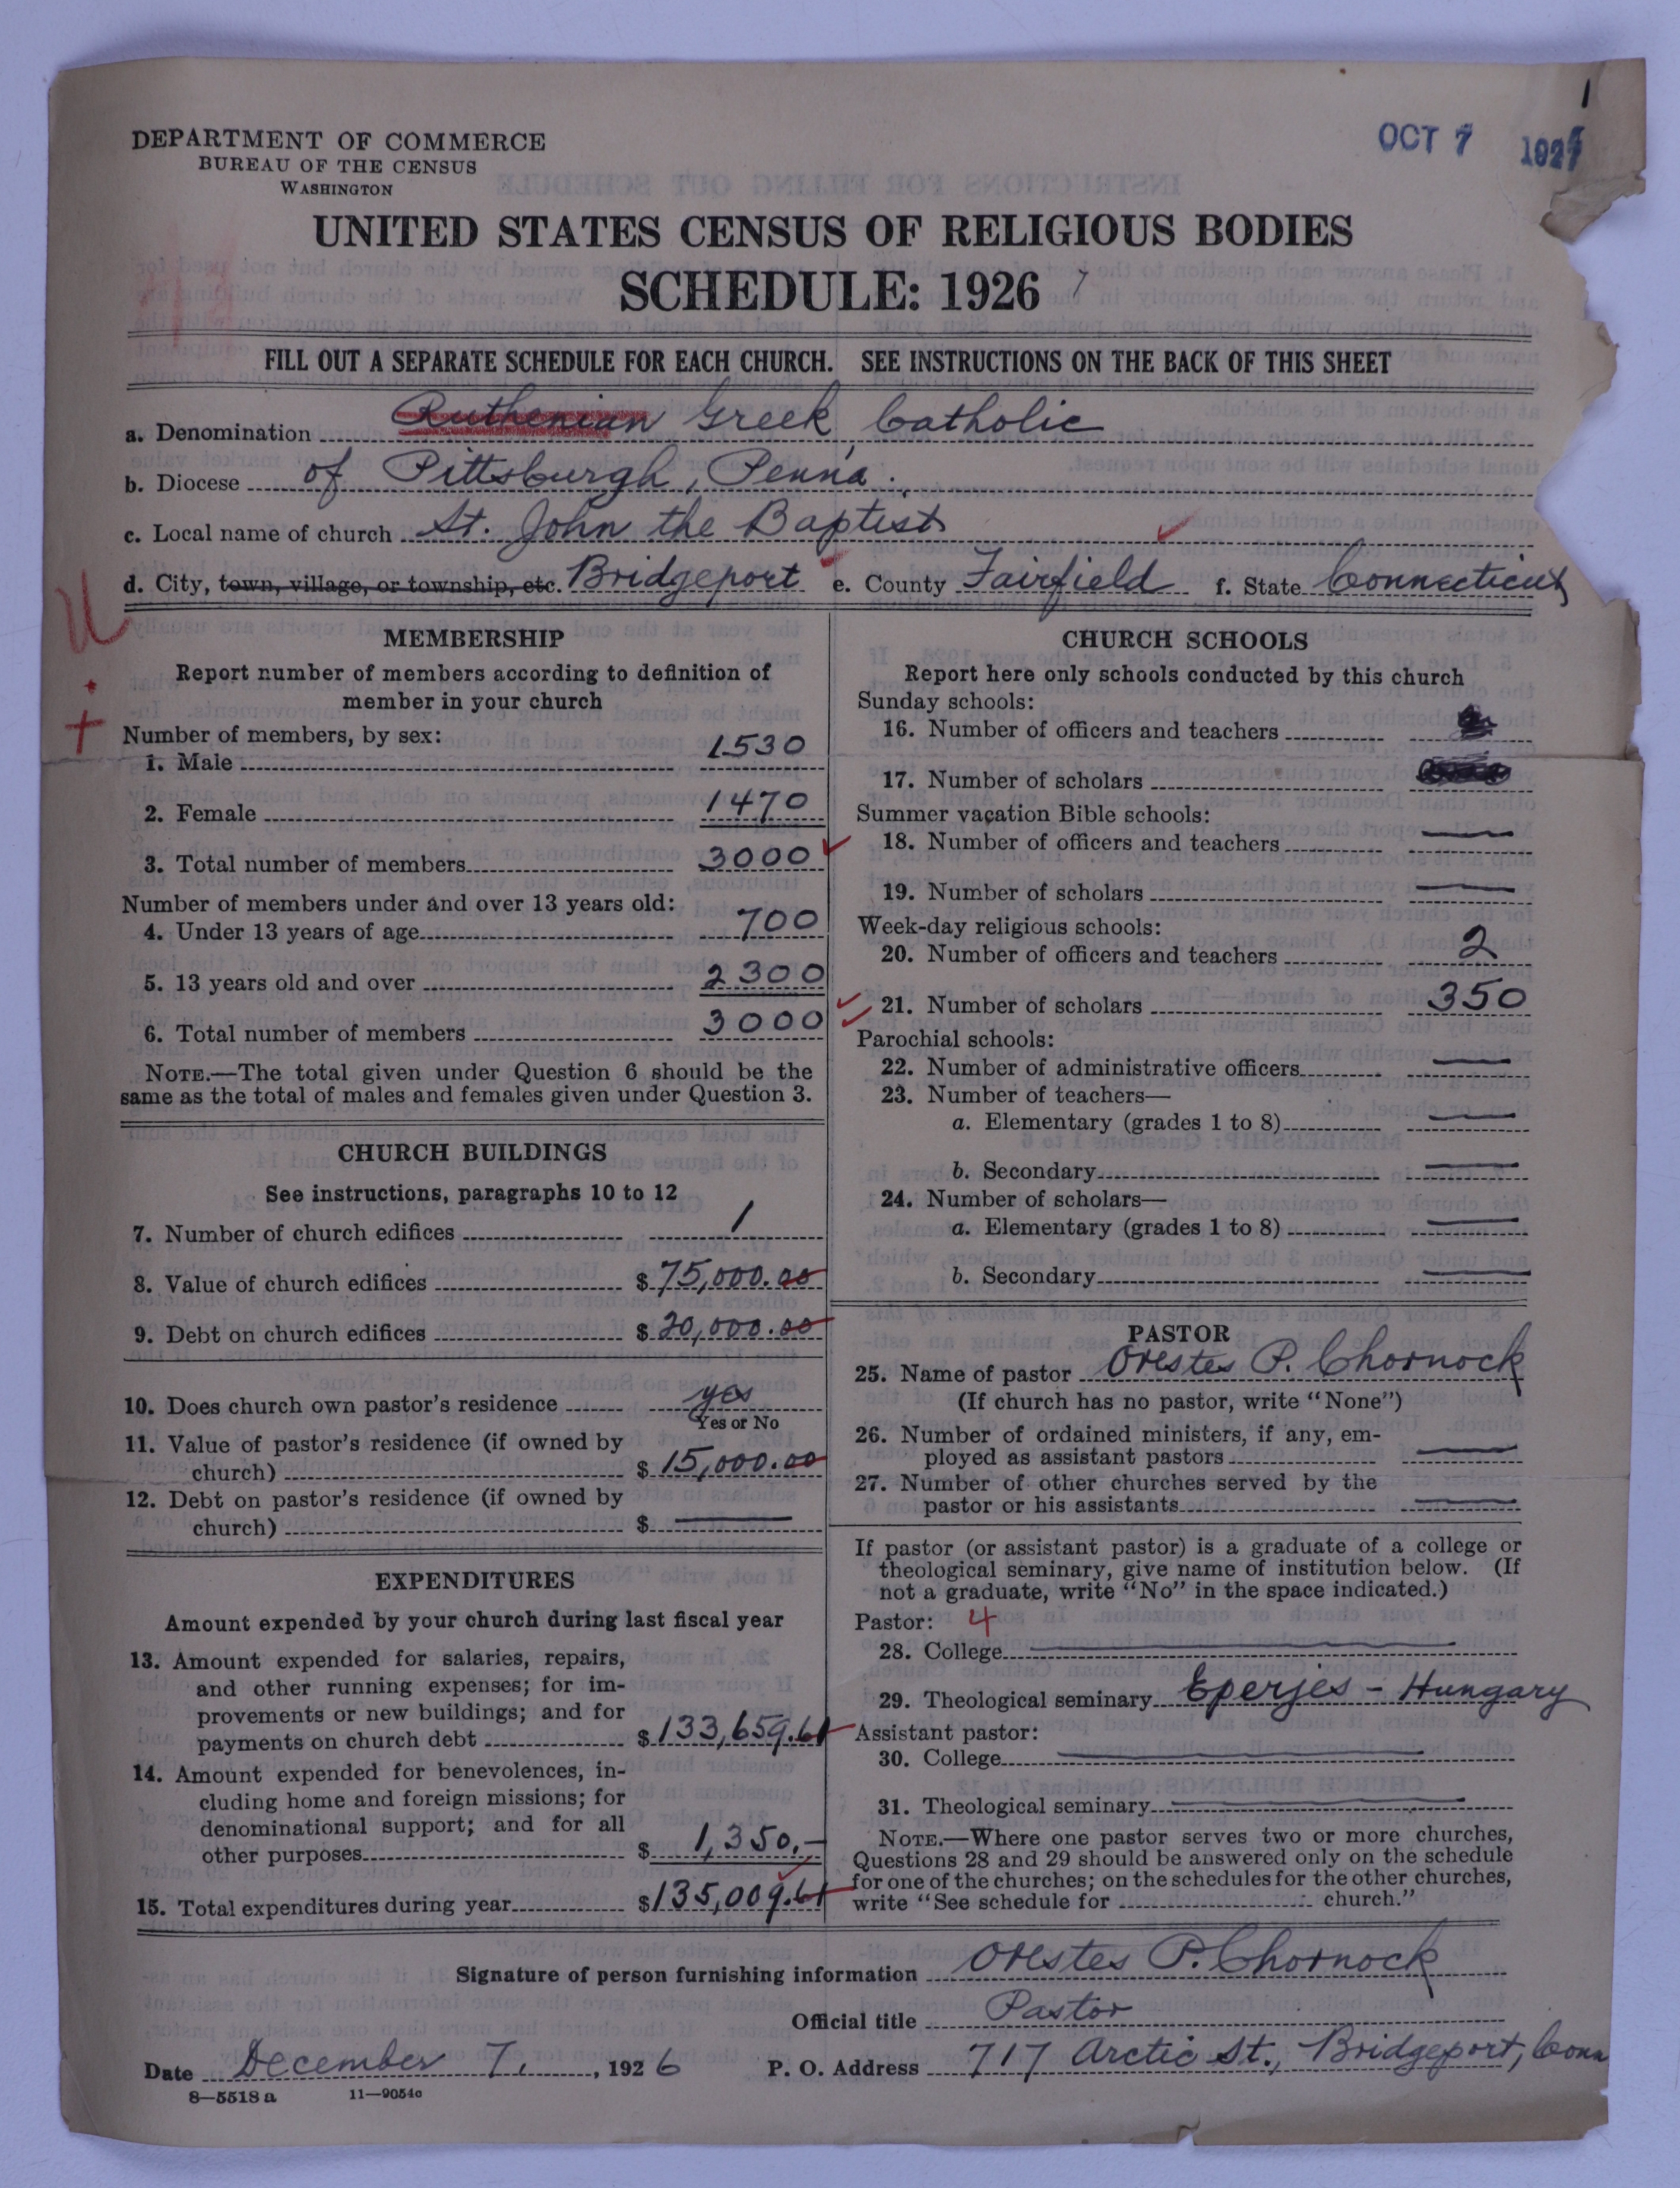 DEPARTMENT OF COMMERCE
BUREAU OF THE CENSUS
WASHINGTON
OCT 7 1927
1
UNITED STATES CENSUS OF RELIGIOUS BODIES
SCHEDULE: 1926
FILL OUT A SEPARATE SCHEDULE FOR EACH CHURCH. SEE INSTRUCTIONS ON THE BACK OF THIS SHEET
a. Denomination Ruthenian Greek Catholic
b. Diocese of Pittsburgh, Penn'a.
c. Local name of church St. John the Baptist
d. City, town, village, or township, etc. Bridgeport e. County Fairfield f. State Connecticut
MEMBERSHIP
Report number of members according to definition of
member in your church
Number of members, by sex:
1. Male 1530
2. Female 1470
3. Total number of members 3000
Number of members under and over 13 years old:
4. Under 13 years of age 700
5. 13 years old and over 2300
6. Total number of members 3000
NOTE.—The total given under Question 6 should be the
same as the total of males and females given under Question 3.
CHURCH BUILDINGS
See instructions, paragraphs 10 to 12
7. Number of church edifices 1
8. Value of church edifices $75,000.00
9. Debt on church edifices $20,000.00
10. Does church own pastor's residence yes
Yes or No
11. Value of pastor's residence (if owned by
church) $15,000.00
12. Debt on pastor's residence (if owned by
church) $ —
EXPENDITURES
Amount expended by your church during last fiscal year
13. Amount expended for salaries, repairs,
and other running expenses; for im-
provements or new buildings; and for
payments on church debt $133,659.61
14. Amount expended for benevolences, in-
cluding home and foreign missions; for
denominational support; and for all
other purposes $1,350.—
15. Total expenditures during year $135,009.61
CHURCH SCHOOLS
Report here only schools conducted by this church
Sunday schools:
16. Number of officers and teachers
17. Number of scholars
Summer vacation Bible schools:
18. Number of officers and teachers —
19. Number of scholars —
Week-day religious schools:
20. Number of officers and teachers 2
21. Number of scholars 350
Parochial schools:
22. Number of administrative officers —
23. Number of teachers—
a. Elementary (grades 1 to 8) —
b. Secondary —
24. Number of scholars—
a. Elementary (grades 1 to 8) —
b. Secondary —
PASTOR
25. Name of pastor Orestes P. Chornock
(If church has no pastor, write "None")
26. Number of ordained ministers, if any, em-
ployed as assistant pastors —
27. Number of other churches served by the
pastor or his assistants —
If pastor (or assistant pastor) is a graduate of a college or
theological seminary, give name of institution below. (If
not a graduate, write "No" in the space indicated.)
Pastor: 4
28. College —
29. Theological seminary Eperjes - Hungary
Assistant pastor:
30. College —
31. Theological seminary —
NOTE.—Where one pastor serves two or more churches,
Questions 28 and 29 should be answered only on the schedule
for one of the churches; on the schedules for the other churches,
write "See schedule for church."
Signature of person furnishing information Orestes P. Chornock
Official title Pastor
Date December 7, 1926 P. O. Address 717 Arctic St., Bridgeport, Conn
8—5518 a 11—9054c